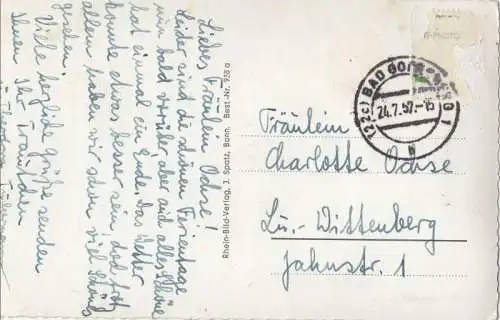 Liebes Fräulein Ochse!
Leider sind die schönen Ferientage
nun bald vorüber aber auch alles Schöne
hat einmal ein Ende. Das Wetter
konnte etwas besser sein, doch trotz
allem haben wir schon viel Schönes
gesehen.
Viele herzliche Grüße senden
Ihnen Ihr Trautchen
Rhein-Bild-Verlag, J. Spatz, Bonn. Best-Nr. 935 a
(22c) BAD GO
24.7.52.-15
b
Fräulein
Charlotte Ochse
Lu.-Wittenberg
Jahnstr. 1